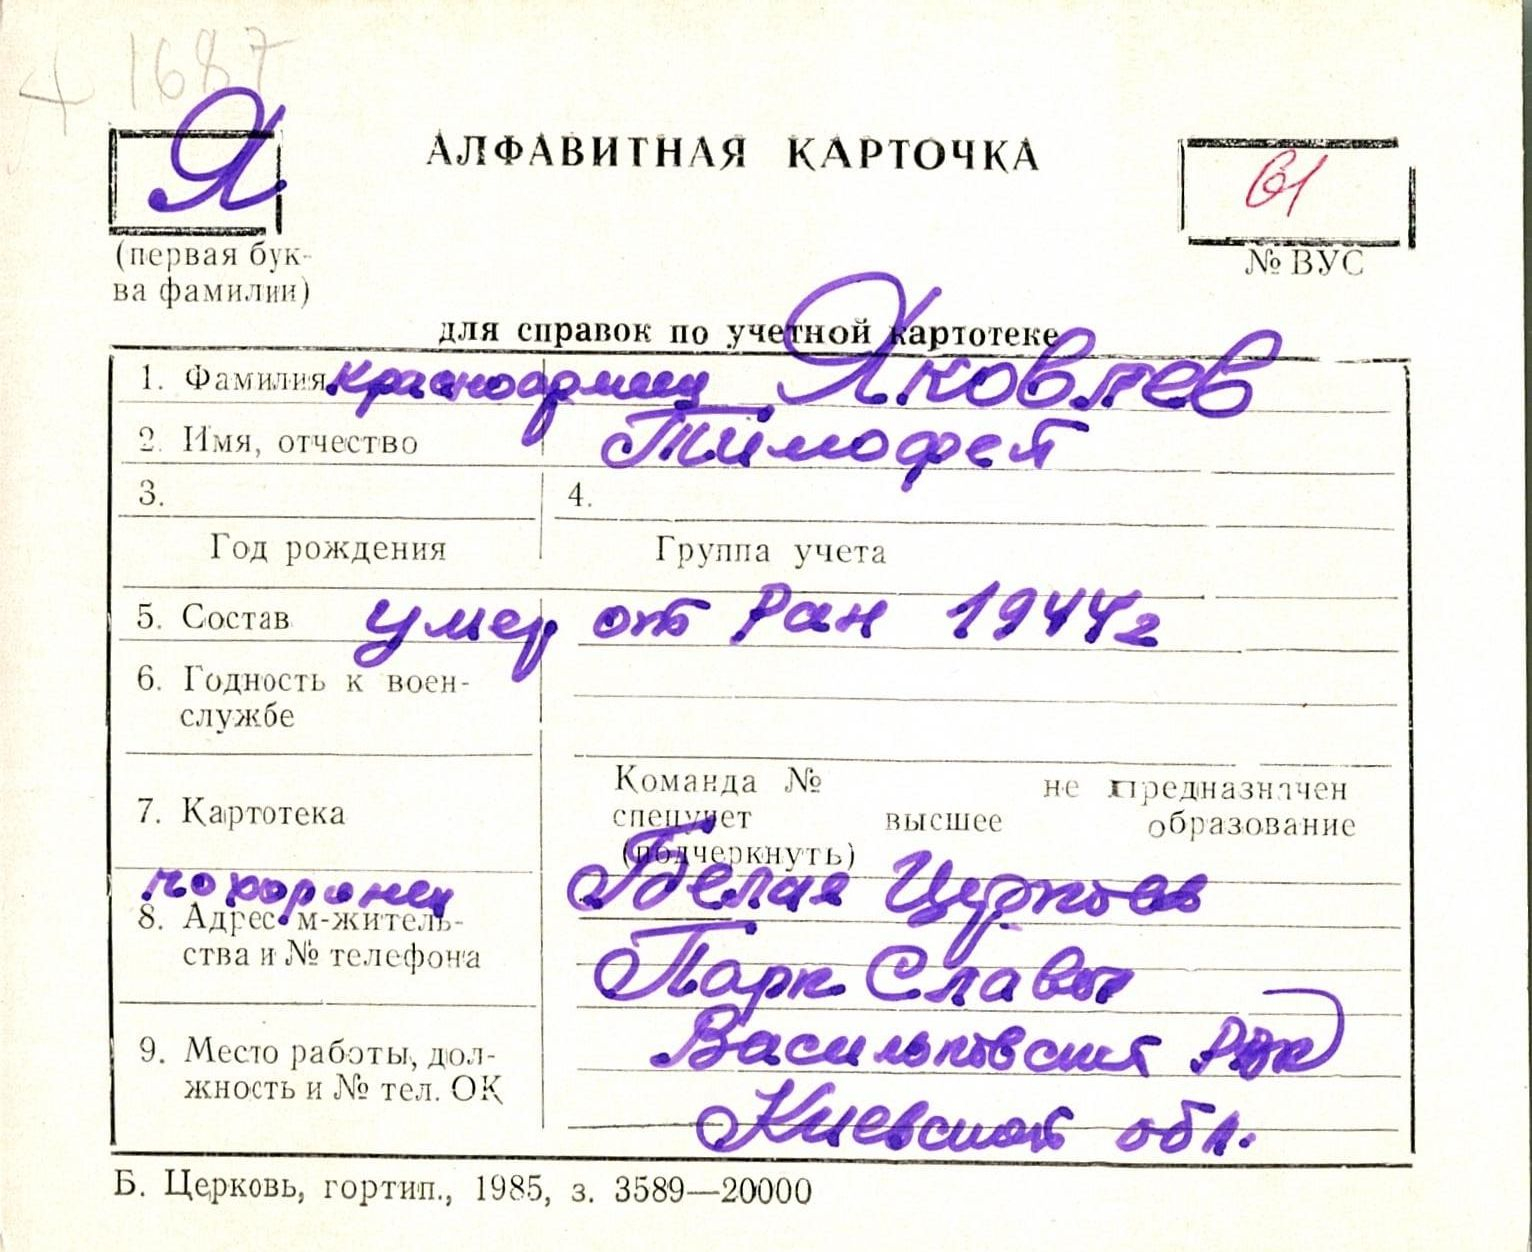 1687
Я
АЛФАВИТНАЯ КАРТОЧКА
61
(первая бук-
ва фамилии)
№ ВУС
для справок по учетной картотеке
1. Фамилия красноармеец Яковлев
2. Имя, отчество Тимофей
3. 4.
Год рождения Группа учета
5. Состав умер от ран 1944г
6. Годность к воен-
службе
7. Картотека
Команда № не предназначен
спецучет высшее образование
(подчеркнуть)
похоронен Белая Церковь
8. Адрес м-житель-
ства и № телефона
Парк Славы
9. Место работы, дол-
жность и № тел. ОК
Васильковский РВК
Киевской обл.
Б. Церковь, гортип., 1985, з. 3589—20000